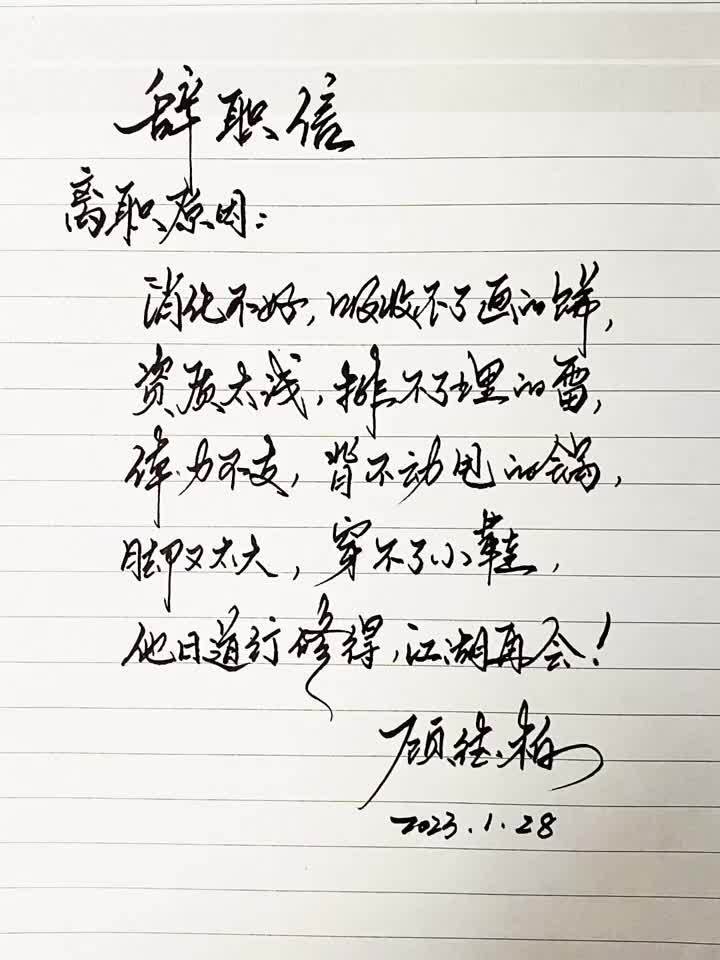 辞职信
离职原因：
消化不好，吸收不了画的饼，
资质太浅，排不了埋的雷，
体力不支，背不动甩的锅，
脚又太大，穿不了小鞋，
他日道行修得，江湖再会！
顾
2023.1.28